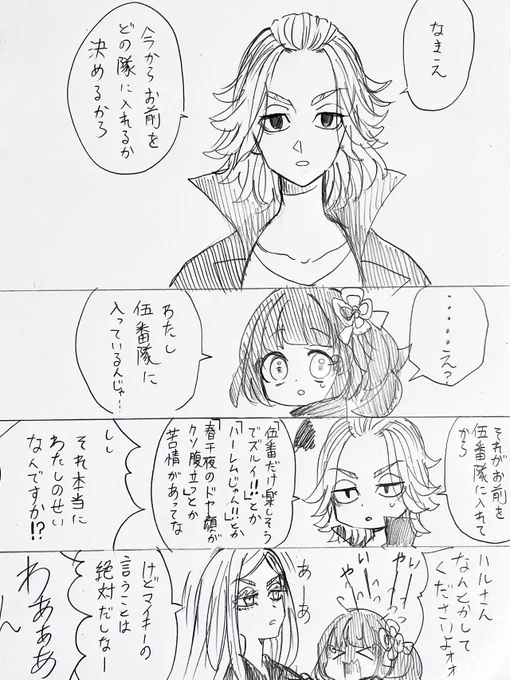 なきえ
今からお前を
どの隊に入れるか
決めるから
・・・・・・え?
わたし
伍番隊に
入っているんじゃ…
それがお前を
伍番隊に入れて
から
「伍番だけ楽しそう
でズルイ!!」とか
「ハーレムじゃん!!」とか
「春千夜のドヤ顔が
クソ腹立つ」とか
苦情があってな
しし
それ本当に
わたしのせい
なんですか!?
ハルさん
なんとかして
くださいよォォ
やいっ
やいっ
あーあ
けどマイキーの
言うことは
絶対だしなー
わあぁぁ
ん